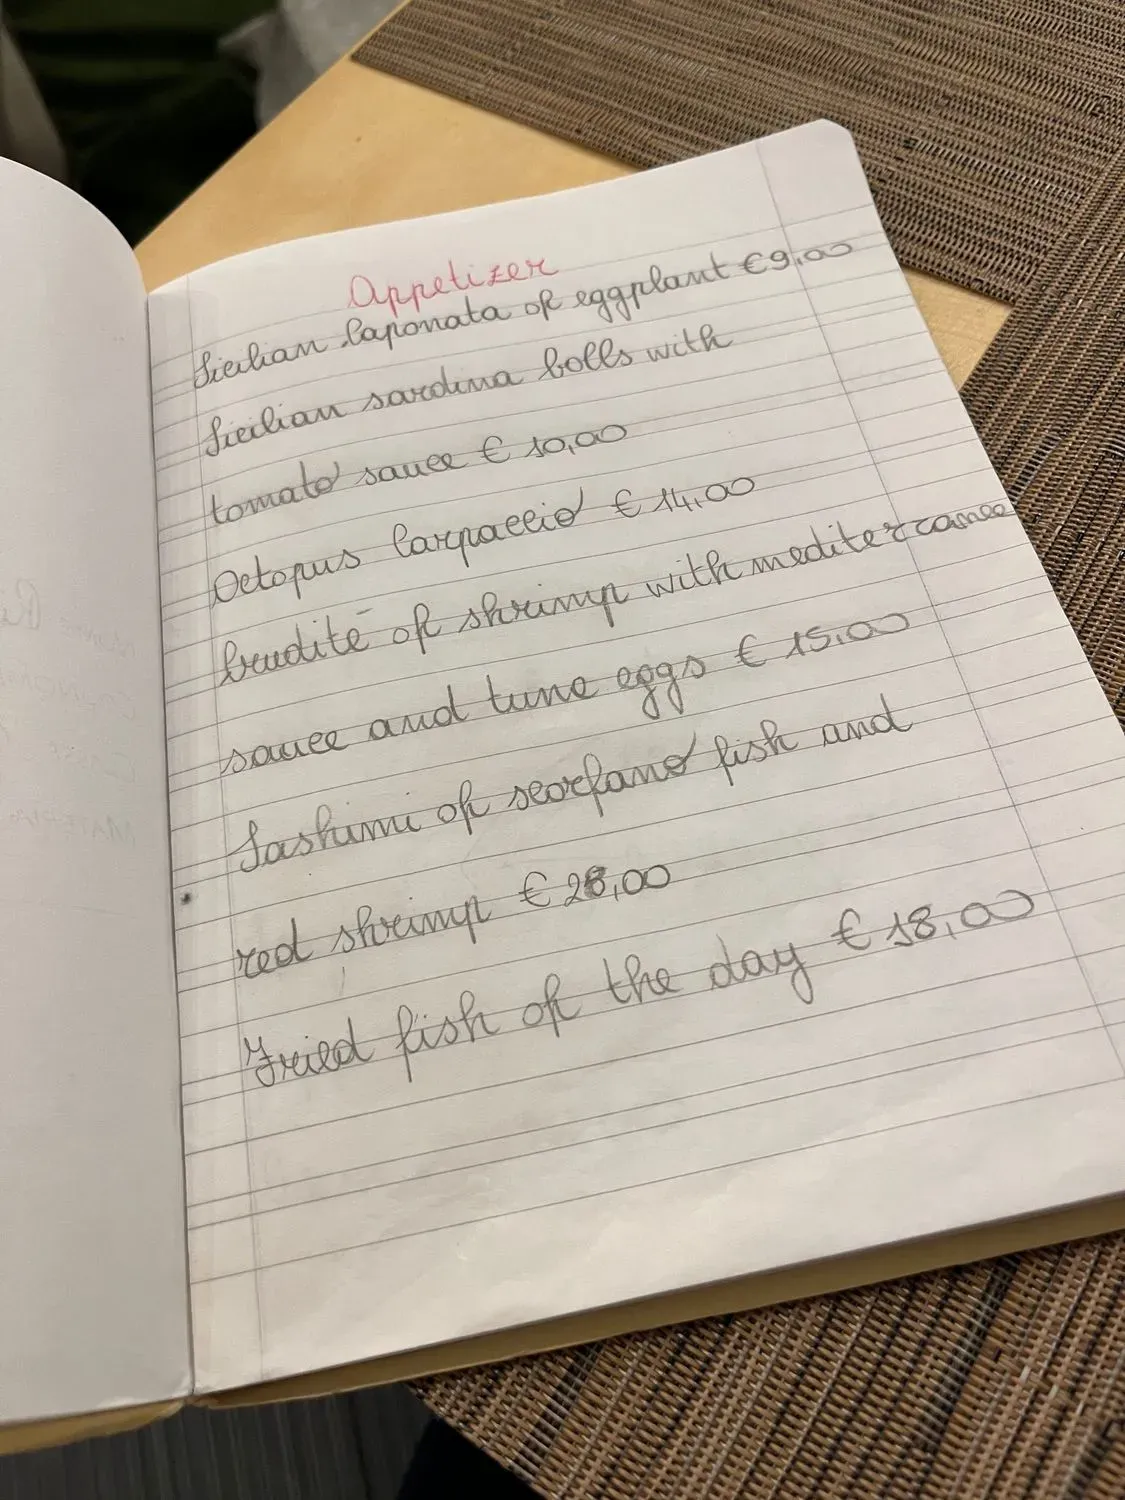 Appetizer
Sicilian Caponata of eggplant €9,00
Sicilian sardina bolls with
tomato sauce € 10,00
Octopus Carpaccio € 14,00
Crudité of shrimp with mediterranee
sauce and tune eggs € 15,00
Sashimi of scorfano fish and
red shrimp € 28,00
Fried fish of the day € 18,00